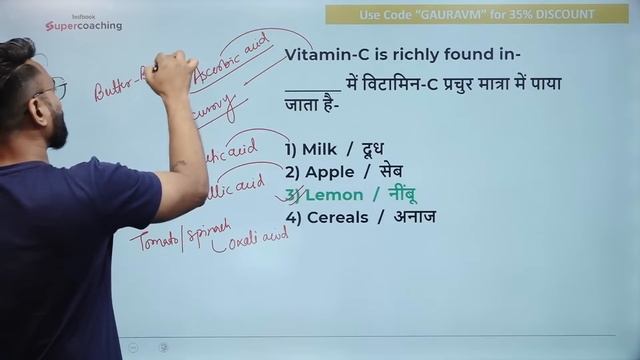 testbook
Supercoaching
Use Code "GAURAVM" for 35% DISCOUNT
Ascorbic acid
Butter-B
Vitamin-C is richly found in-
_____ में विटामिन-C प्रचुर मात्रा में पाया
जाता है-
1) Milk / दूध
2) Apple / सेब
3) Lemon / नींबू
4) Cereals / अनाज
acid
acid
Tomato/Spinach
Oxalic acid